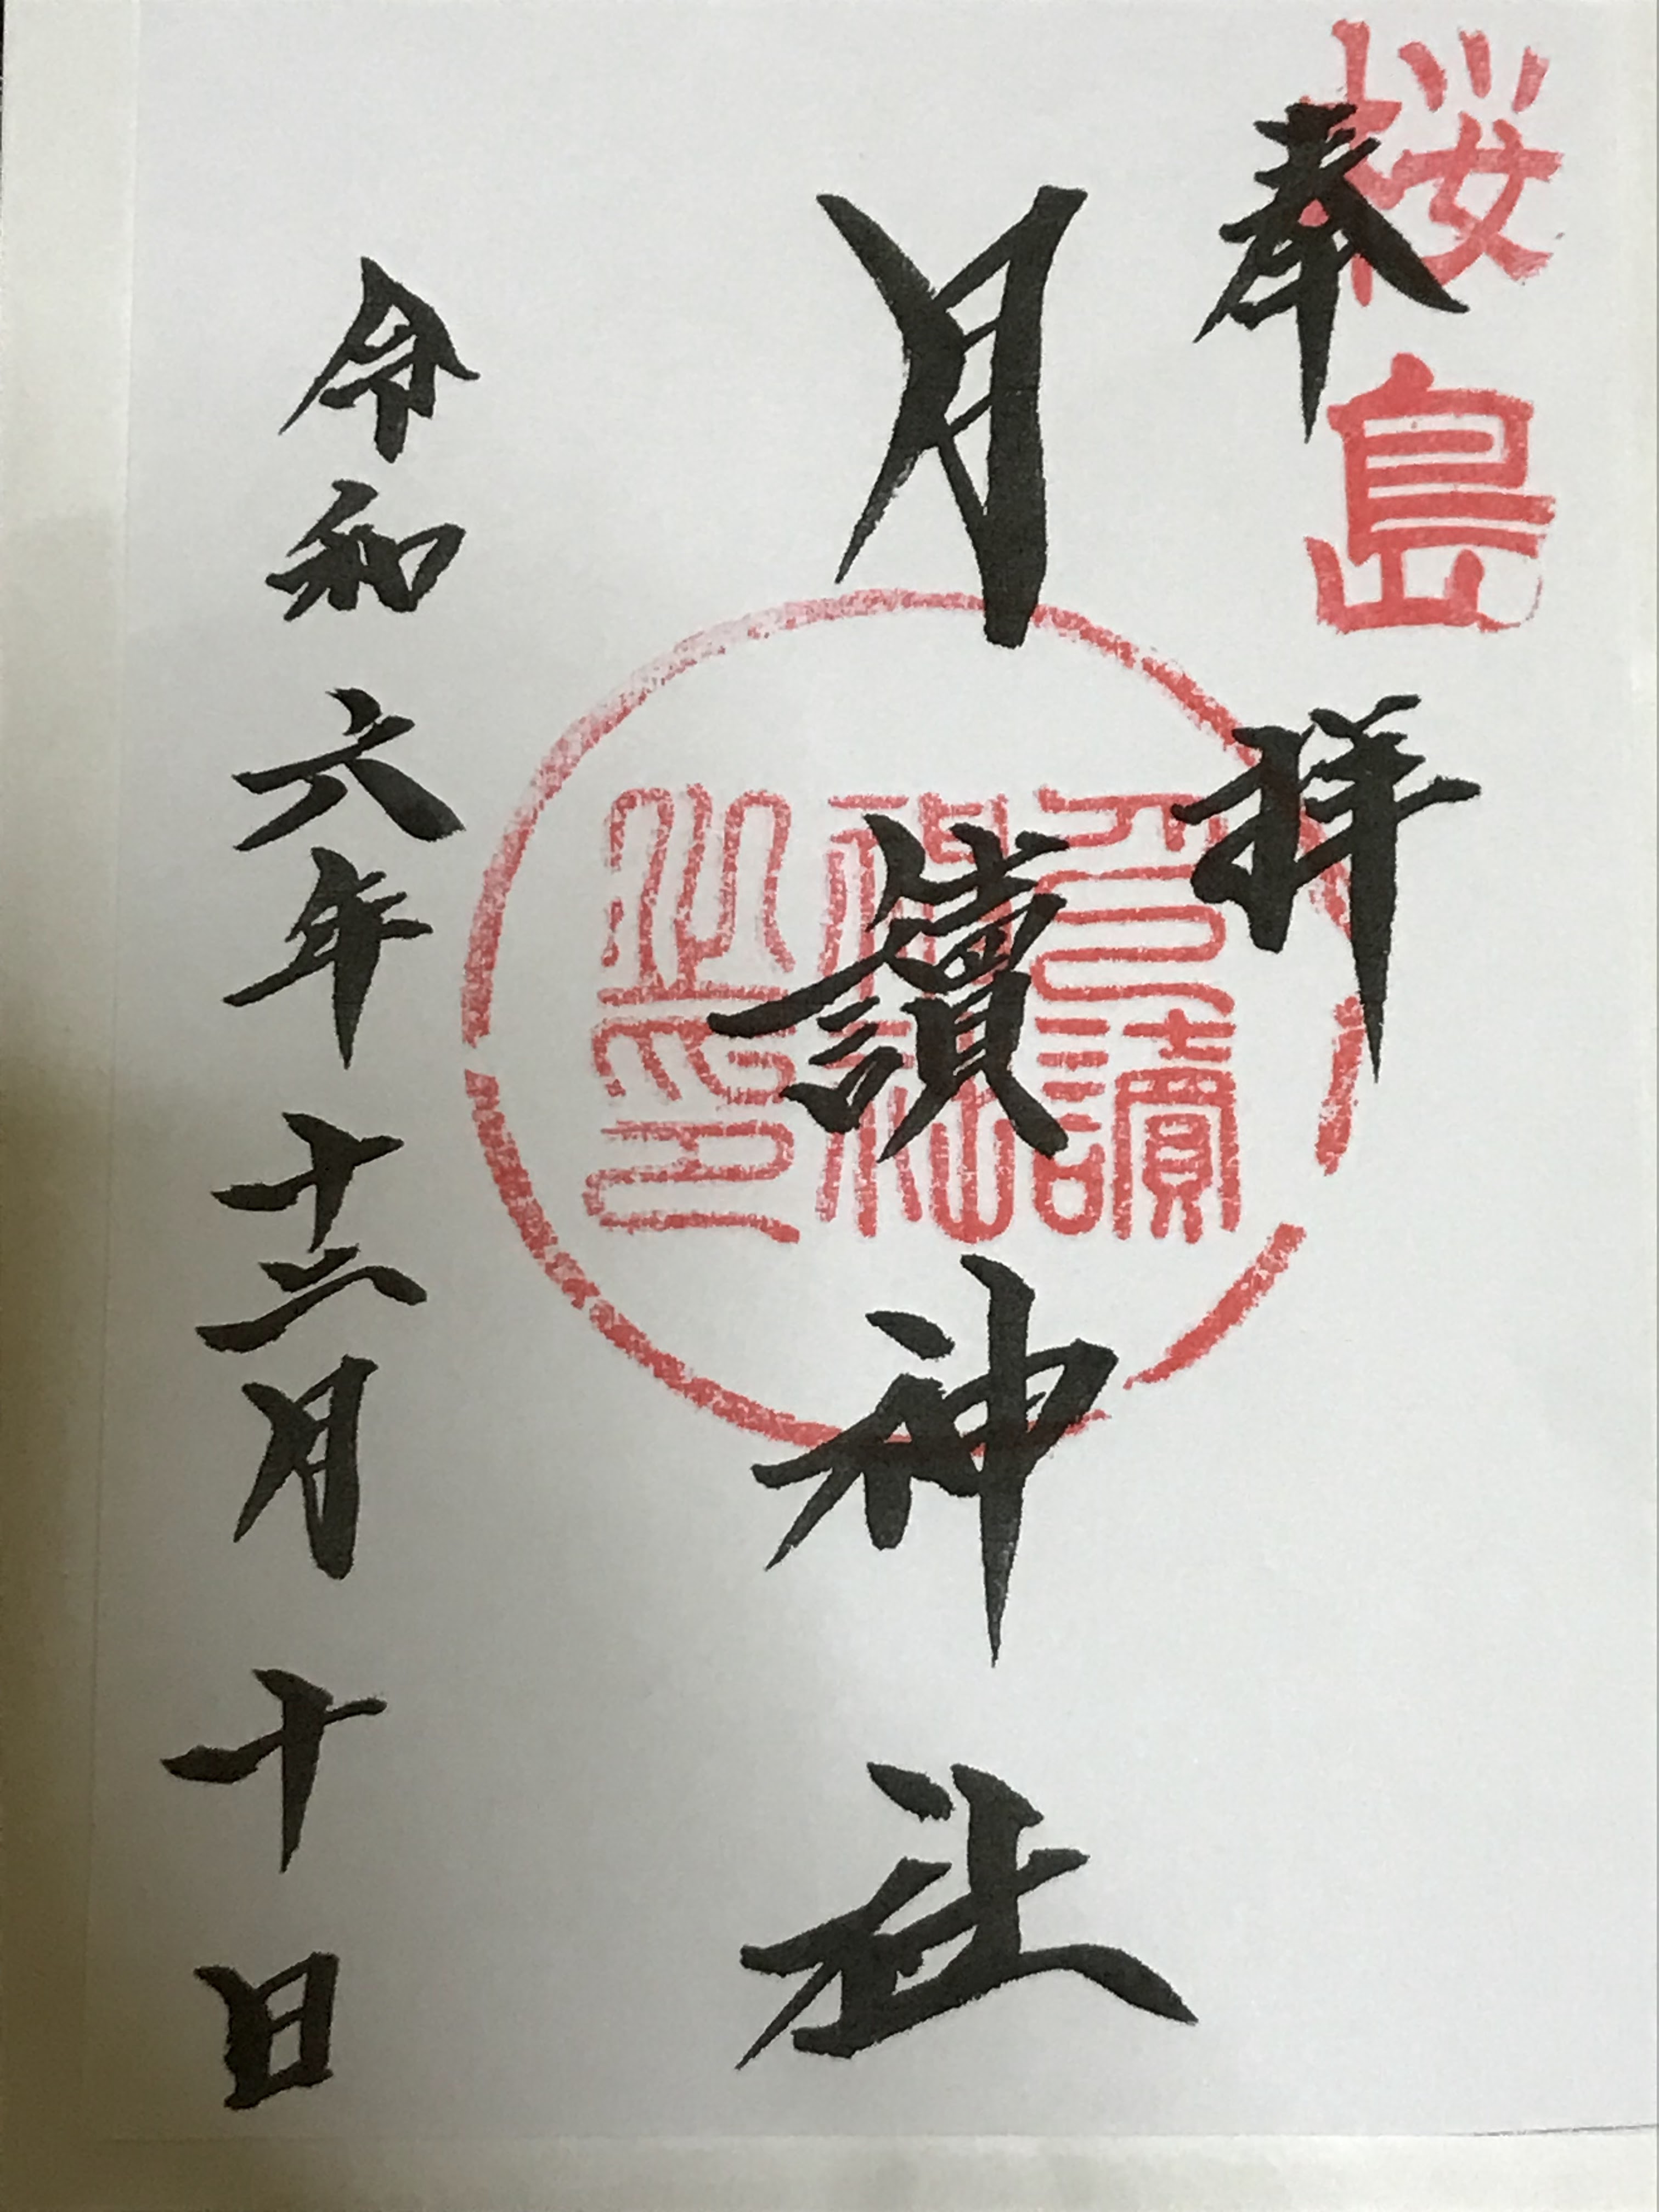 桜島
奉拝
月讀神社
月讀神社之印
令和六年十二月十日